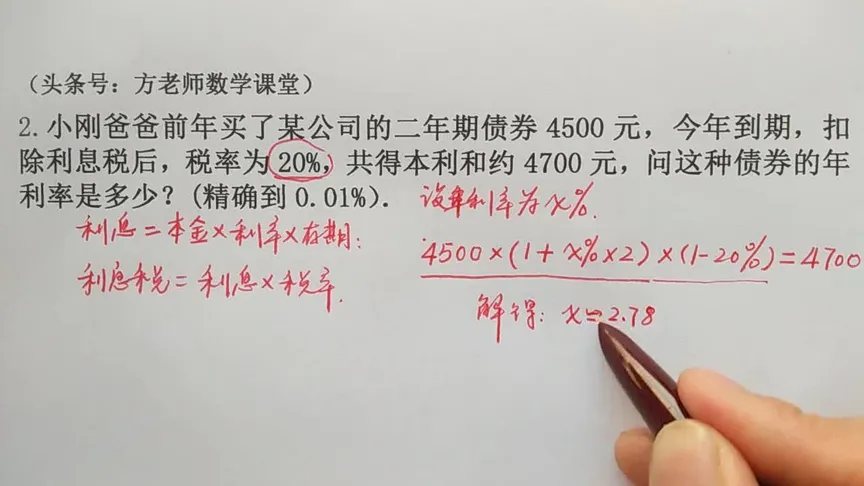 （头条号：方老师数学课堂）
2.小刚爸爸前年买了某公司的二年期债券 4500 元，今年到期，扣
除利息税后，税率为 20%，共得本利和约 4700 元，问这种债券的年
利率是多少？(精确到 0.01%).
设年利率为x%.
利息=本金×利率×存期:
4500×(1+x%×2)×(1-20%)=4700
利息税=利息×税率.
解得: x≈2.78